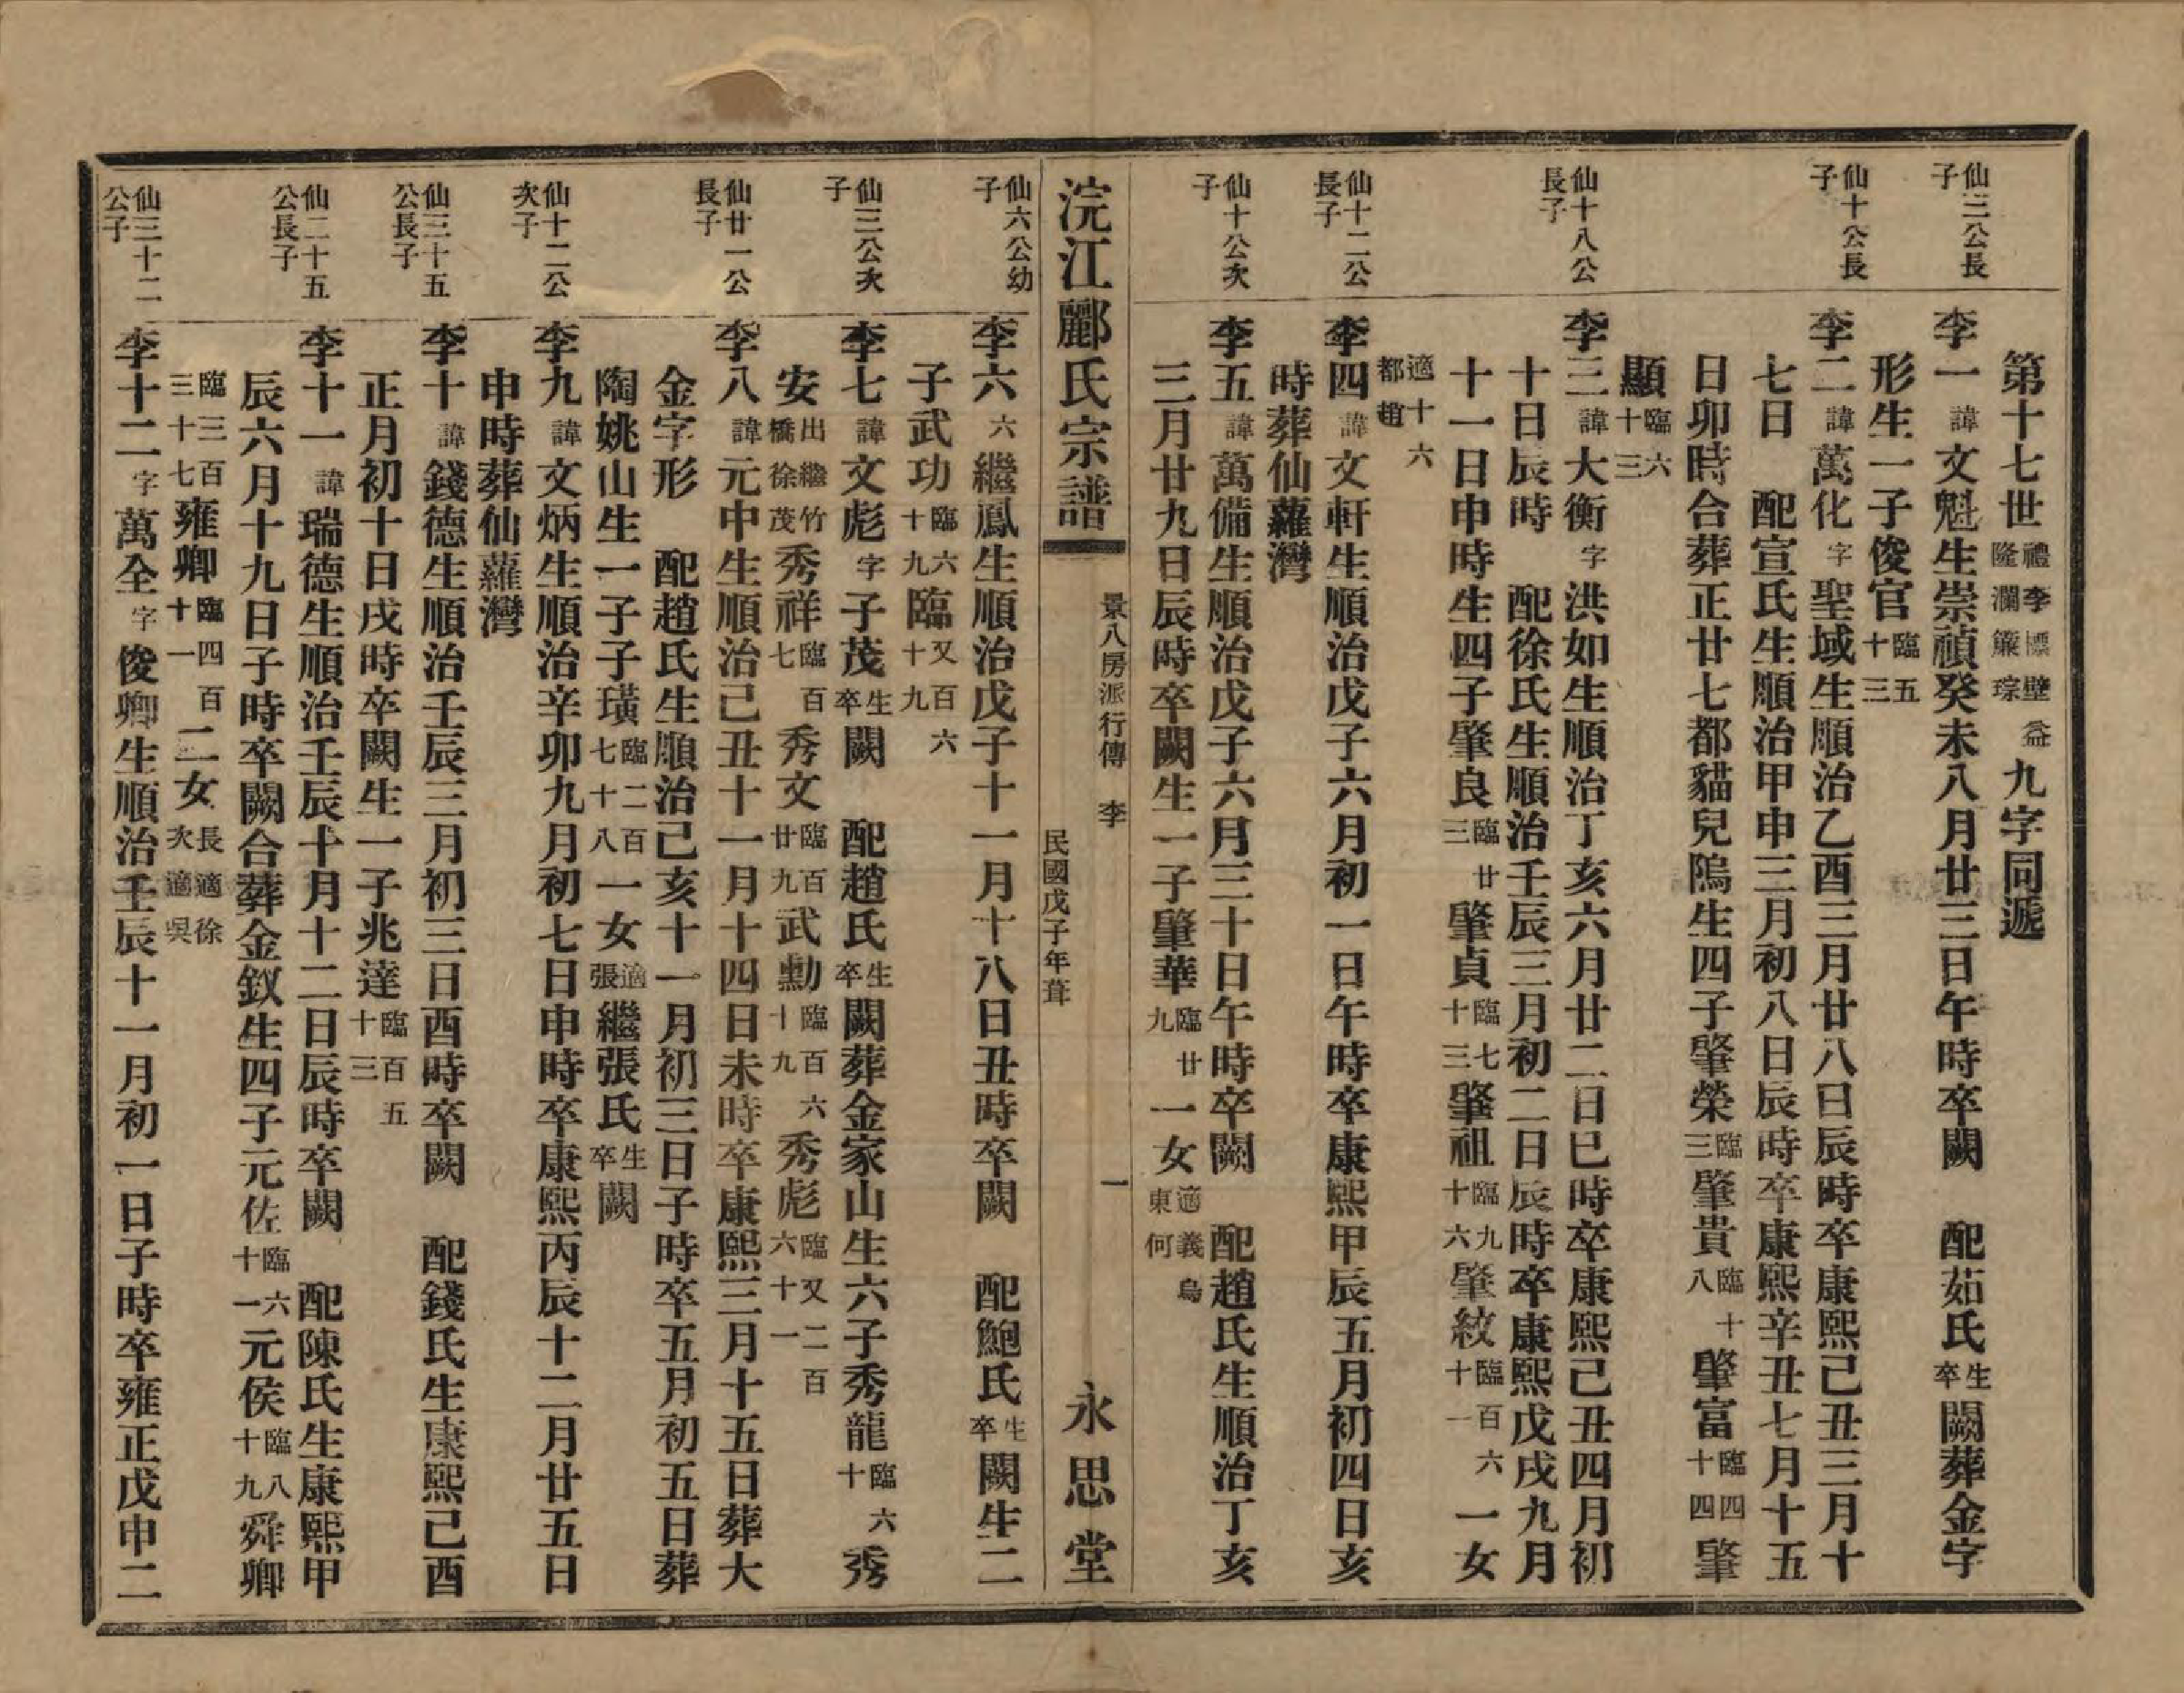 第十七世禮李㯹壁益隆瀾簾琮九字同遞
仙三公長子
李一諱文魁生崇禎癸未八月廿三日午時卒闕　配茹氏生卒闕葬金字
形生一子俊官臨五十三
仙十公長子
李二諱萬化字聖域生順治乙酉三月廿八日辰時卒康熙己丑三月十
七日　配宣氏生順治甲申三月初八日辰時卒康熙辛丑七月十五
日卯時合葬正廿七都貓兒隖生四子肇榮臨三肇貴臨十八肇富臨四十四肇
顯臨六十三
仙十八公長子
李三諱大衡字洪如生順治丁亥六月廿二日巳時卒康熙己丑四月初
十日辰時　配徐氏生順治壬辰三月初二日辰時卒康熙戊戌九月
十一日申時生四子肇良臨廿三肇貞臨七十三肇祖臨九十六肇紋臨百六十一一女
適十六都趙
仙十二公長子
李四諱文軒生順治戊子六月初一日午時卒康熙甲辰五月初四日亥
時葬仙蘿灣
仙十公次子
李五諱萬備生順治戊子六月三十日午時卒闕　配趙氏生順治丁亥
三月廿九日辰時卒闕生一子肇華臨廿九一女適義烏東何
浣江酈氏宗譜
景八房派行傳　李　一
民國戊子年葺
永思堂
仙六公幼子
李六六繼鳳生順治戊子十一月十八日丑時卒闕　配鮑氏生卒闕生二
子武功臨六十九臨又百六十九
仙三公次子
李七諱文彪字子茂生卒闕　配趙氏生卒闕葬金家山生六子秀龍臨六十秀
安出繼竹橋徐茂秀祥臨百七秀文臨百廿九武勳臨百六十九秀彪臨又二百六十一
仙廿一公長子
李八諱元中生順治己丑十一月十四日未時卒康熙三月十五日葬大
金字形　配趙氏生順治己亥十一月初三日子時卒五月初五日葬
陶姚山生一子子璜臨二百七十八一女適張繼張氏生卒闕
仙十二公次子
李九諱文炳生順治辛卯九月初七日申時卒康熙丙辰十二月廿五日
申時葬仙蘿灣
仙三十五公長子
李十諱錢德生順治壬辰三月初三日酉時卒闕　配錢氏生康熙己酉
正月初十日戌時卒闕生一子兆達臨百五十三
仙二十五公長子
李十一諱瑞德生順治壬辰十月十二日辰時卒闕　配陳氏生康熙甲
辰六月十九日子時卒闕合葬金釵生四子元佐臨六十一元侯臨八十九舜卿
臨三百三十七雍卿臨四百十一二女長適徐次適吳
仙三十二公子
李十二字萬全字俊卿生順治壬辰十一月初一日子時卒雍正戊申二